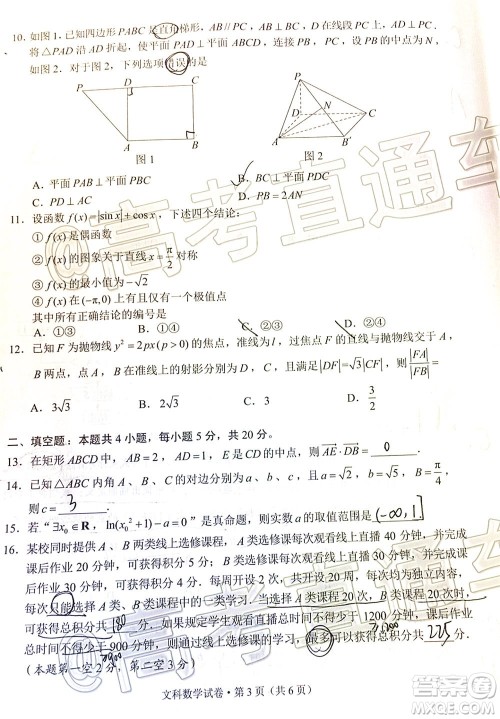 10. 如图1, 已知四边形PABC是直角梯形, AB//PC, AB⊥BC, D在线段PC上, AD⊥PC.
将△PAD沿AD折起, 使平面PAD⊥平面ABCD, 连接PB, 设PB的中点为N,
如图2. 对于图2, 下列选项错误的是
P D C
A B
图1
P
N
D C
A B
图2
A. 平面PAB⊥平面PBC
B. BC⊥平面PDC
C. PD⊥AC
D. PB=2AN
11. 设函数f(x)=|sin x|+cos x, 下述四个结论:
① f(x)是偶函数
② f(x)的图象关于直线x=π/2对称
③ f(x)的最小值为-√2
④ f(x)在(-π,0)上有一个极值点
其中所有正确结论的编号是
A. ①③ B. ①④ C. ②③ D. ②④
12. 已知F为抛物线y²=2px(p>0)的焦点, 准线为l, 过焦点F的直线与抛物线交于A,
B两点, 点A, B在准线上的射影分别为点D, E, 且满足|DF|=√3|EF|, 则|FA|/|FB|=
A. 3√3 B. 3 C. √3 D. 3/2
二、填空题: 本题共4小题, 每小题5分, 共20分。
13. 在矩形ABCD中, AB=2, AD=1, 则AC·DB= 0
14. 已知△ABC内角A、B、C的对边分别为a、b、c, B=π/4
则c= 3
15. 若“∃x₀∈R, ln(x₀²+1)-a=0”是真命题, 则a的取值范围是 (-∞,1]
16. 某校同时提供A、B两类线上选修课程, A类选修课每次观看线上直播40分钟, 并完成
课后作业20分钟, 可获得积分5分; B类选修课每次观看线上直播30分钟, 并完成课
后作业30分钟, 可获得积分4分. 每天
每次只能选择A类、B类课程中的一类学习. 当选择A类课程20次, B类课程20次时,
可获得总积分共 180 分. 如果规定学生观看直播总时间不得少于1200分钟, 课后作业
总时间不得少于900分钟, 则通过线上选修课的学习, 最多可以获得总积分共 225 分.
(本题第一空2分, 第二空3分)
文科数学试卷·第3页(共6页)
@高考直通车